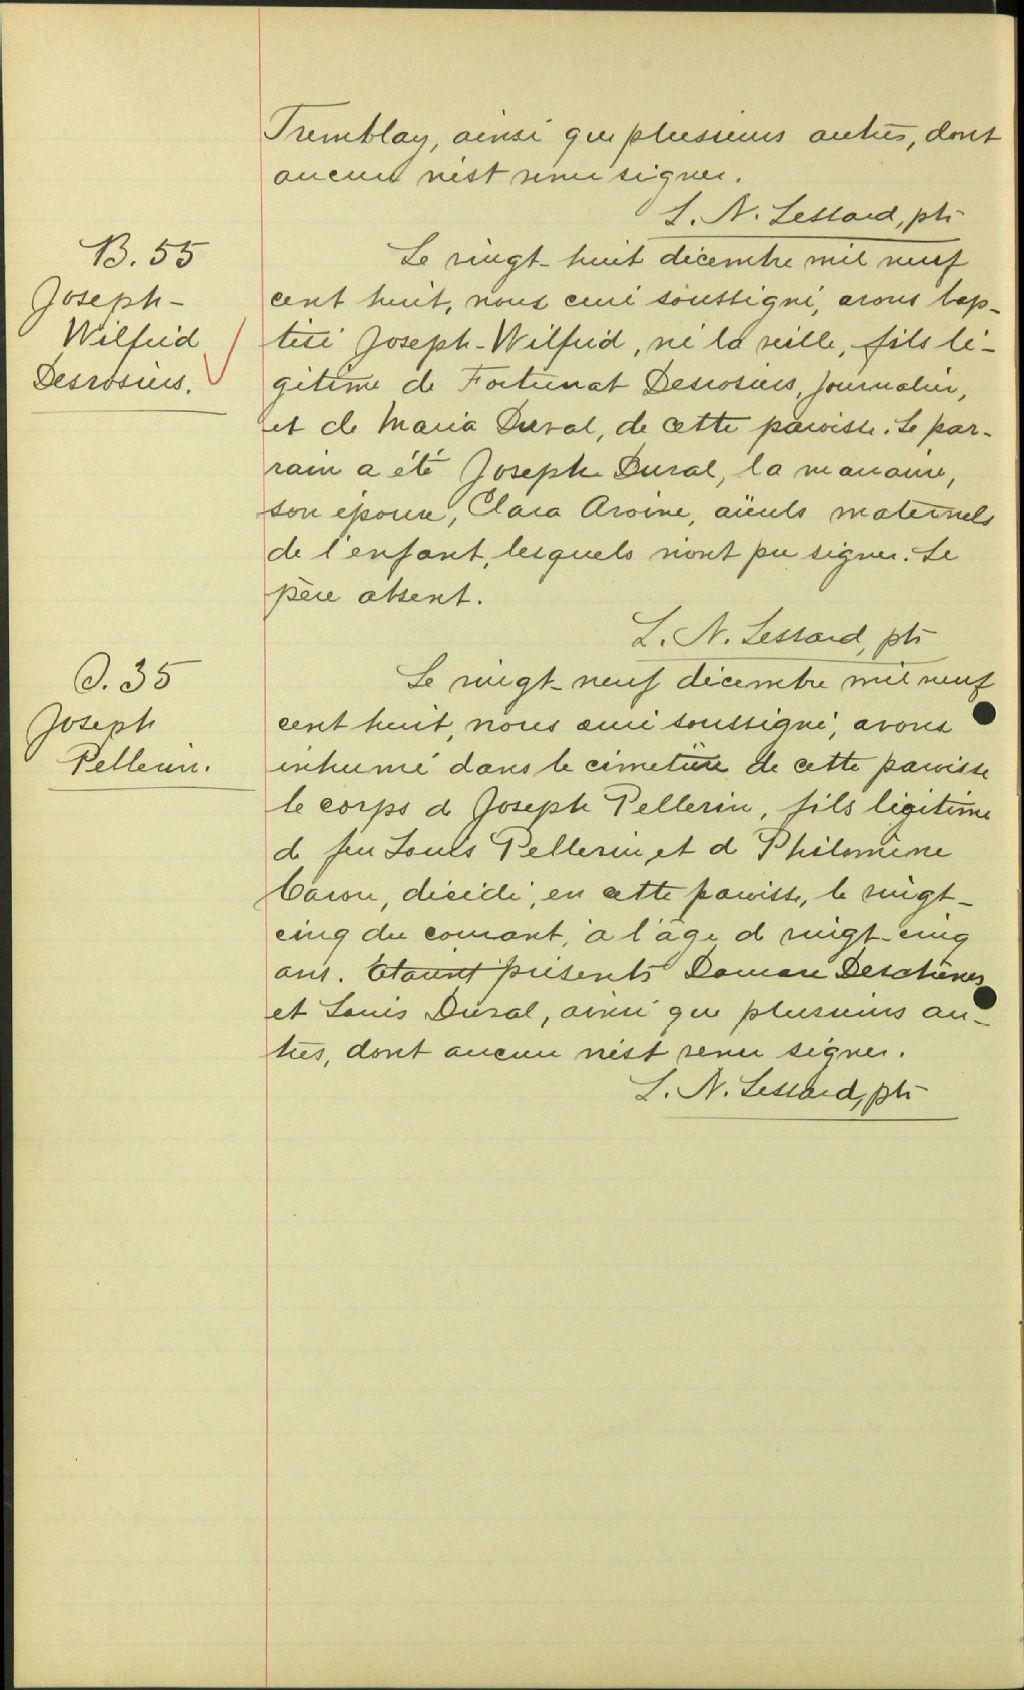 Tremblay, ainsi que plusieurs autres, dont
aucun n'est venu signer.
L. N. Lessard, ptr
B. 55
Joseph-
Wilfrid
Desrosiers.
Le vingt-huit décembre mil neuf
cent huit, nous curé soussigné, avons bap-
tisé Joseph-Wilfrid, né la veille, fils lé-
gitime de Fortunat Desrosiers, journalier,
et de Maria Duval, de cette paroisse. Le par-
rain a été Joseph Duval, la marraine,
son épouse, Clara Avoine, aïeuls maternels
de l'enfant, lesquels n'ont pu signer. Le
père absent.
L. N. Lessard, ptr
S. 35
Joseph
Pellerin.
Le vingt-neuf décembre mil neuf
cent huit, nous curé soussigné, avons
inhumé dans le cimetière de cette paroisse
le corps de Joseph Pellerin, fils légitime
de feu Louis Pellerin, et de Philomène
Caron, décédé, en cette paroisse, le vingt-
cinq du courant, à l'âge de vingt-cinq
ans. Etaient présents Damase Deschênes
et Louis Duval, ainsi que plusieurs au-
tres, dont aucun n'est venu signer.
L. N. Lessard, ptr